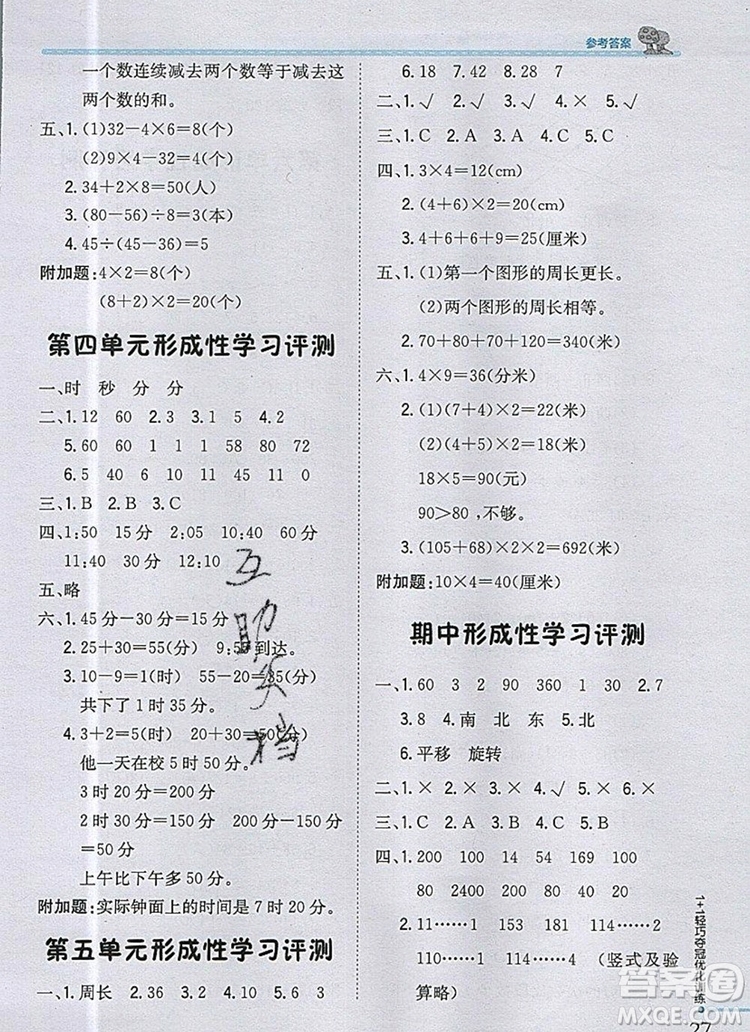 参考答案
一个数连续减去两个数等于减去这
两个数的和。
五、1.(1)32-4×6=8(个)
(2)9×4-30=6(个)
2.34+2×8=50(人)
3.(80-56)÷8=3(本)
4.45÷(45-36)=5
附加题:4×2=8(个)
(8+2)×2=20(个)
第四单元形成性学习评测
一、时 秒 分 分
二、1.12 60 2.3 3.1 5 4.2
5.60 60 1 1 1 58 80 72
6.5 40 60 120 120 110
三、1.B 2.B 3.C
四、1:50 15分 2:05 10:40 60分
11:40 30分 12:10
五、略
六、1.45分-30分=15分
2.25+30=55(分) 9:50到达。
3.10-9=1(时) 55-20=35(分)
共下了1时35分。
4.3+2=5(时) 20+30=50(分)
他一天在校5时50分。
3时20分=200分
2时30分=150分 200分-150分
=50分
上午比下午多50分。
附加题:实际钟面上的时间是7时20分。
第五单元形成性学习评测
一、1.周长 2.36 3.2 4.10 5.6 3
6.18 7.42 8.28 7
二、1.√ 2.√ 3.√ 4.√
三、1.C 2.A 3.A 4.C
四、1.3×4=12(cm)
2.(4+6)×2=20(cm)
3.(6+4)×2=20(厘米)
五、1.(1)第一个图形的周长更长。
(2)两个图形的周长相等。
2.70+80+70+120=340(米)
六、1.4×9=36(分米)
2.(1)(7+4)×2=22(米)
(2)(5+4)×2=18(米)
18×5=90(元)
90>80,不够。
3.(105+68)×2×2=692(米)
附加题:10×4=40(厘米)
期中形成性学习评测
一、1.60 3 2 90 360 1 30 2.7
3.8 4.南 北 东 5.北
6.平移 旋转
二、1.× 2.× 3.× 4.√ 5.× 6.×
三、1.C 2.A 3.B 4.C
四、1.200 100 14 54 169 100
64 2400 2800 100 154 100
2.11……1 191 114……2
110……1 60……4 (竖式及验
算略)
互
助
文
档
1+1轻巧夺冠优化训练
27
答案圈
MXQE.COM